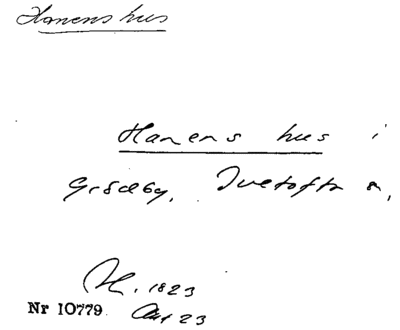 Hanens hus
Hanens hus i
Grödby, Ivetofta s,
1823
Nr 10779. 23